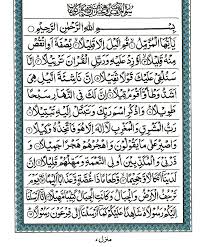 بِسْمِ اللّٰهِ الرَّحْمٰنِ الرَّحِيْمِ
يٰٓاَيُّهَا الْمُزَّمِّلُ ۙ قُمِ الَّيْلَ اِلَّا قَلِيْلًا ۙ نِّصْفَهٗٓ اَوِ انْقُصْ
مِنْهُ قَلِيْلًا ۙ اَوْ زِدْ عَلَيْهِ وَرَتِّلِ الْقُرْاٰنَ تَرْتِيْلًا ۗ اِنَّا
سَنُلْقِيْ عَلَيْكَ قَوْلًا ثَقِيْلًا ۗ اِنَّ نَاشِئَةَ الَّيْلِ هِيَ
اَشَدُّ وَطْـًٔا وَّاَقْوَمُ قِيْلًا ۗ اِنَّ لَكَ فِي النَّهَارِ سَبْحًا
طَوِيْلًا ۗ وَاذْكُرِ اسْمَ رَبِّكَ وَتَبَتَّلْ اِلَيْهِ تَبْتِيْلًا ۗ
رَبُّ الْمَشْرِقِ وَالْمَغْرِبِ لَآ اِلٰهَ اِلَّا هُوَ فَاتَّخِذْهُ وَكِيْلًا
وَاصْبِرْ عَلٰى مَا يَقُوْلُوْنَ وَاهْجُرْهُمْ هَجْرًا جَمِيْلًا
وَذَرْنِيْ وَالْمُكَذِّبِيْنَ اُولِي النَّعْمَةِ وَمَهِّلْهُمْ قَلِيْلًا اِنَّ
لَدَيْنَآ اَنْكَالًا وَّجَحِيْمًا ۙ وَّطَعَامًا ذَا غُصَّةٍ وَّعَذَابًا اَلِيْمًا يَوْمَ
تَرْجُفُ الْاَرْضُ وَالْجِبَالُ وَكَانَتِ الْجِبَالُ كَثِيْبًا مَّهِيْلًا اِنَّآ اَرْسَلْنَآ
اِلَيْكُمْ رَسُوْلًا شَاهِدًا عَلَيْكُمْ كَمَآ اَرْسَلْنَآ اِلٰى فِرْعَوْنَ رَسُوْلًا
منزل ٧